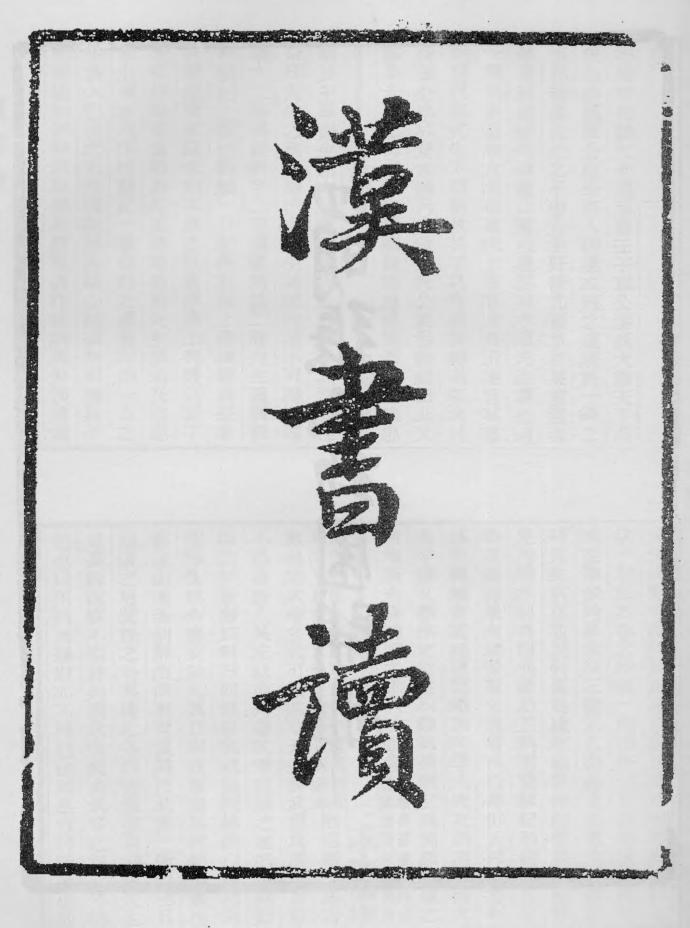 漢書讀